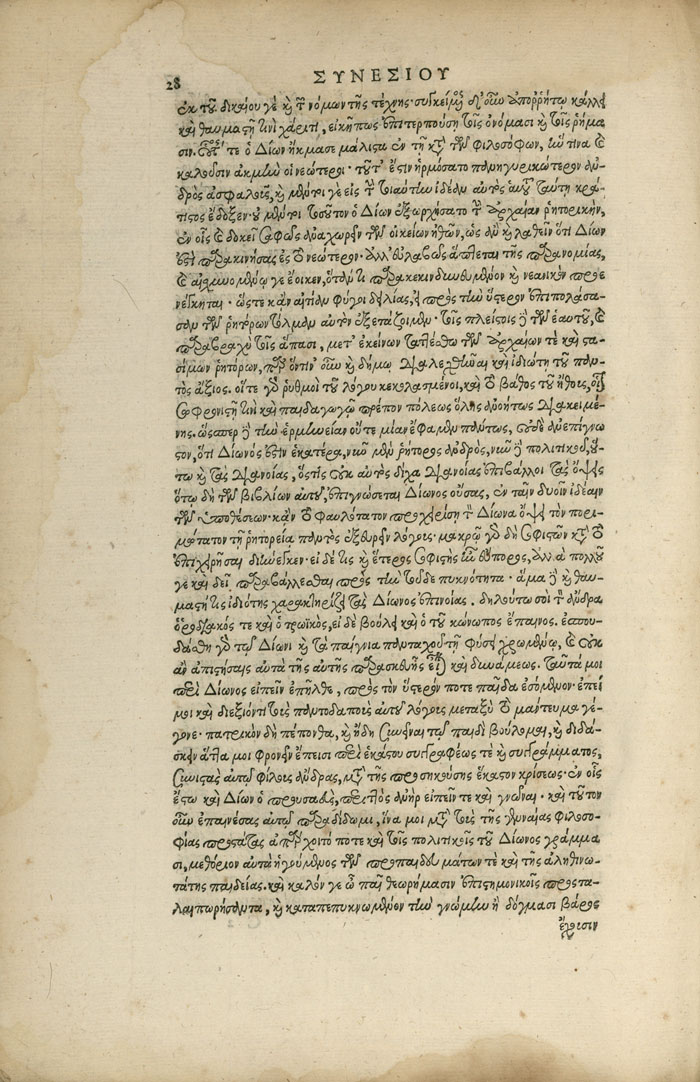 28
ΣΥΝΕΣΙΟΥ
ἐκ τοῦ δικαίου γε καὶ τῶν νόμων τῆς τέχνης συγκείμενον, δι' οὖν ἀπορρήτῳ κάλλει
καὶ θαυμαστῇ τινι χάριτι, εἰκῆ πως ἐπιτερπούση τοῖς ὀνόμασι καὶ τοῖς ῥήμα-
σιν. οὗτός τε ὁ Δίων ἤκμασε μάλιστα ἐν τῇ κατὰ τῶν φιλοσόφων, ἥν τινα καὶ
καλοῦσιν ἀκμὴν οἱ νεώτεροι. τοῦτ' ἔστιν ἡρμόσατο πανηγυρικώτερον ἀν-
δρὸς ἀσφαλεῖς, καὶ μέντοι γε εἰς τὴν τοιαύτην ἰδέαν αὐτὸς αὑτοῦ ταύτῃ κρά-
τιστος ἔδοξεν. οὐ μέντοι τοσοῦτον ὁ Δίων ἐξωρχήσατο τὴν ἀρχαίαν ῥητορικὴν,
ἐν οἷς δοκεῖ σαφῶς ἀναχωρεῖν τῶν οἰκείων ἠθῶν, ὡς ἂν καὶ λαθεῖν ὅτι Δίων
ἐστὶ παρακινήσας ἐς τὸ νεώτερον. ἀλλ' εὐλαβῶς ἅπτεται τῆς παρανομίας,
καὶ αἰσχυνομένῳ γε ἔοικεν, ὅταν τι παρακεκινδυνευμένον καὶ νεανικὸν προε-
νέγκηται. ὥστε κἂν αἰτίαν φύγοι δειλίας, εἰ πρὸς τὴν ὕστερον ἐπιπολάσα-
σαν τῶν ῥητόρων τόλμαν αὐτὸν ἐξετάζοιμεν. τοῖς πλείστοις δὲ τῶν ἑαυτοῦ, καὶ
παραβραχὺ τοῖς ἅπασι, μετ' ἐκείνων τατέσθω τῶν ἀρχαίων τὲ καὶ στα-
σίμων ῥητόρων, παρ' ὁντιν' οὖν καὶ δήμῳ διαλεχθῆναι καὶ ἰδιώτῃ τοῦ παν-
τὸς ἄξιος. οἵ τε γὰρ ῥυθμοὶ τοῦ λόγου κεκολασμένοι, καὶ τὸ βάθος τοῦ ἤθους, οἷον
σωφρονιστῇ τινι καὶ παιδαγωγῷ πρέπον πόλεως ὅλης ἀνοήτως διακειμέ-
νης. ὥσπερ δὲ τὴν ἑρμηνείαν οὔτε μίαν ἔφαμεν πάντως, οὐδὲ ἀνεπίγνω-
στον, ὅτι Δίωνός ἐστιν ἑκατέρα, νῦν μὲν ῥήτορος ἀνδρὸς, νῦν δὲ πολιτικοῦ, οὕ-
τω καὶ τὰς διανοίας, ὅστις οὐκ αὐτὸς δίχα διανοίας ἐπιβάλλοι τὰς ὄψεις
ὅτῳ δὴ τῶν βιβλίων αὐτοῦ, ἐπιγνώσεται Δίωνος οὔσας, ἐν ταῖν δυοῖν ἰδέαιν
τῶν ὑποθέσεων. κἂν τὸ φαυλότατον προχειρίσῃ τὸν Δίωνα ὄψει τὸν πορι-
μώτατον τῇ ῥητορείᾳ παντὸς ἐξευρεῖν λόγοις. μακρῷ γὰρ δὴ σοφιστῶν κατὰ τὸ
ἐπιχειρῆσαι διήνεγκεν. εἰ δέ τις καὶ ἕτερος σοφιστὴς ἦν εὔπορος, ἀλλὰ πολλοῦ
γε καὶ δεῖ παραβάλλεσθαι πρὸς τὴν τοῦδε πυκνότητα. ἅμα δὲ καὶ θαυ-
μαστή τις ἰδιότης χαρακτηρίζει τὰς Δίωνος ἐπινοίας. δηλούτωσαν τὸν ἄνδρα
ὁ ῥοδιακός τε καὶ ὁ τρωϊκὸς, εἰ δὲ βούλει καὶ ὁ τοῦ κώνωπος ἔπαινος. ἐσπου-
δάσθη γὰρ τῷ Δίωνι καὶ τὰ παίγνια πανταχοῦ τῇ φύσει χρωμένῳ, καὶ οὐκ
ἂν ἀπιστήσαις αὐτὰ τῆς αὐτῆς παρασκευῆς εἶναι καὶ δυνάμεως. ταῦτά μοι
περὶ Δίωνος εἰπεῖν ἐπῆλθε, πρὸς τὸν ὕστερόν ποτε παῖδα ἐσόμενον. ἐπεί
μοι καὶ διεξιόντι τοῖς παντοδαποῖς αὐτοῦ λόγοις μεταξὺ τὸ μάντευμα γέ-
γονε. πατρικὸν δὴ πέπονθα, καὶ ἤδη συνεῖναι τῷ παιδὶ βούλομαι, καὶ διδά-
σκειν ἅττα μοι φρονεῖν ἔπεισι περὶ ἑκάστου συγγραφέως τὲ καὶ συγγράμματος,
συνιστὰς αὐτῷ φίλους ἄνδρας, μετὰ τῆς προσηκούσης ἕκαστον κρίσεως. ἐν οἷς
ἔστω καὶ Δίων ὁ προυσαεὺς, περιττὸς ἀνὴρ εἰπεῖν τε καὶ γνῶναι. καὶ τοῦτον
οὖν ἐπαινέσας αὐτῷ παραδίδωμι, ἵνα μοι μετὰ τοῖς τῆς γενναίας φιλοσο-
φίας προστάτας ἀπάρχοιτό ποτε καὶ τοῖς πολιτικοῖς τοῦ Δίωνος γράμμα-
σι, μεθόριον αὐτὰ ἡγούμενος τῶν προπαιδευμάτων τὲ καὶ τῆς ἀληθινω-
τάτης παιδείας. καὶ καλόν γε ὦ παῖ θεωρήμασιν ἐπιστημονικοῖς προστα-
λαιπωρήσαντα, καὶ καταπεπυκνωμένον τὴν γνώμην ἢ δόγμασι βάρος
ἔχουσιν